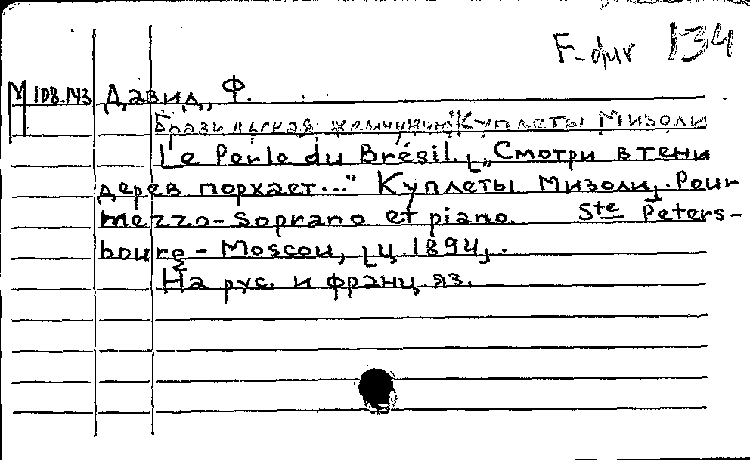 F-dur 134
М 108.143 Давид, Ф.
Бразильская жемчужина "Куплеты Мизоли
Le Perle du Brésil. [„Смотри в тени
дерев порхает..." Куплеты Мизоли]. Pour
mezzo-soprano et piano. Ste Peters-
bourg - Moscou, [ц. 1894].
На рус. и франц. яз.